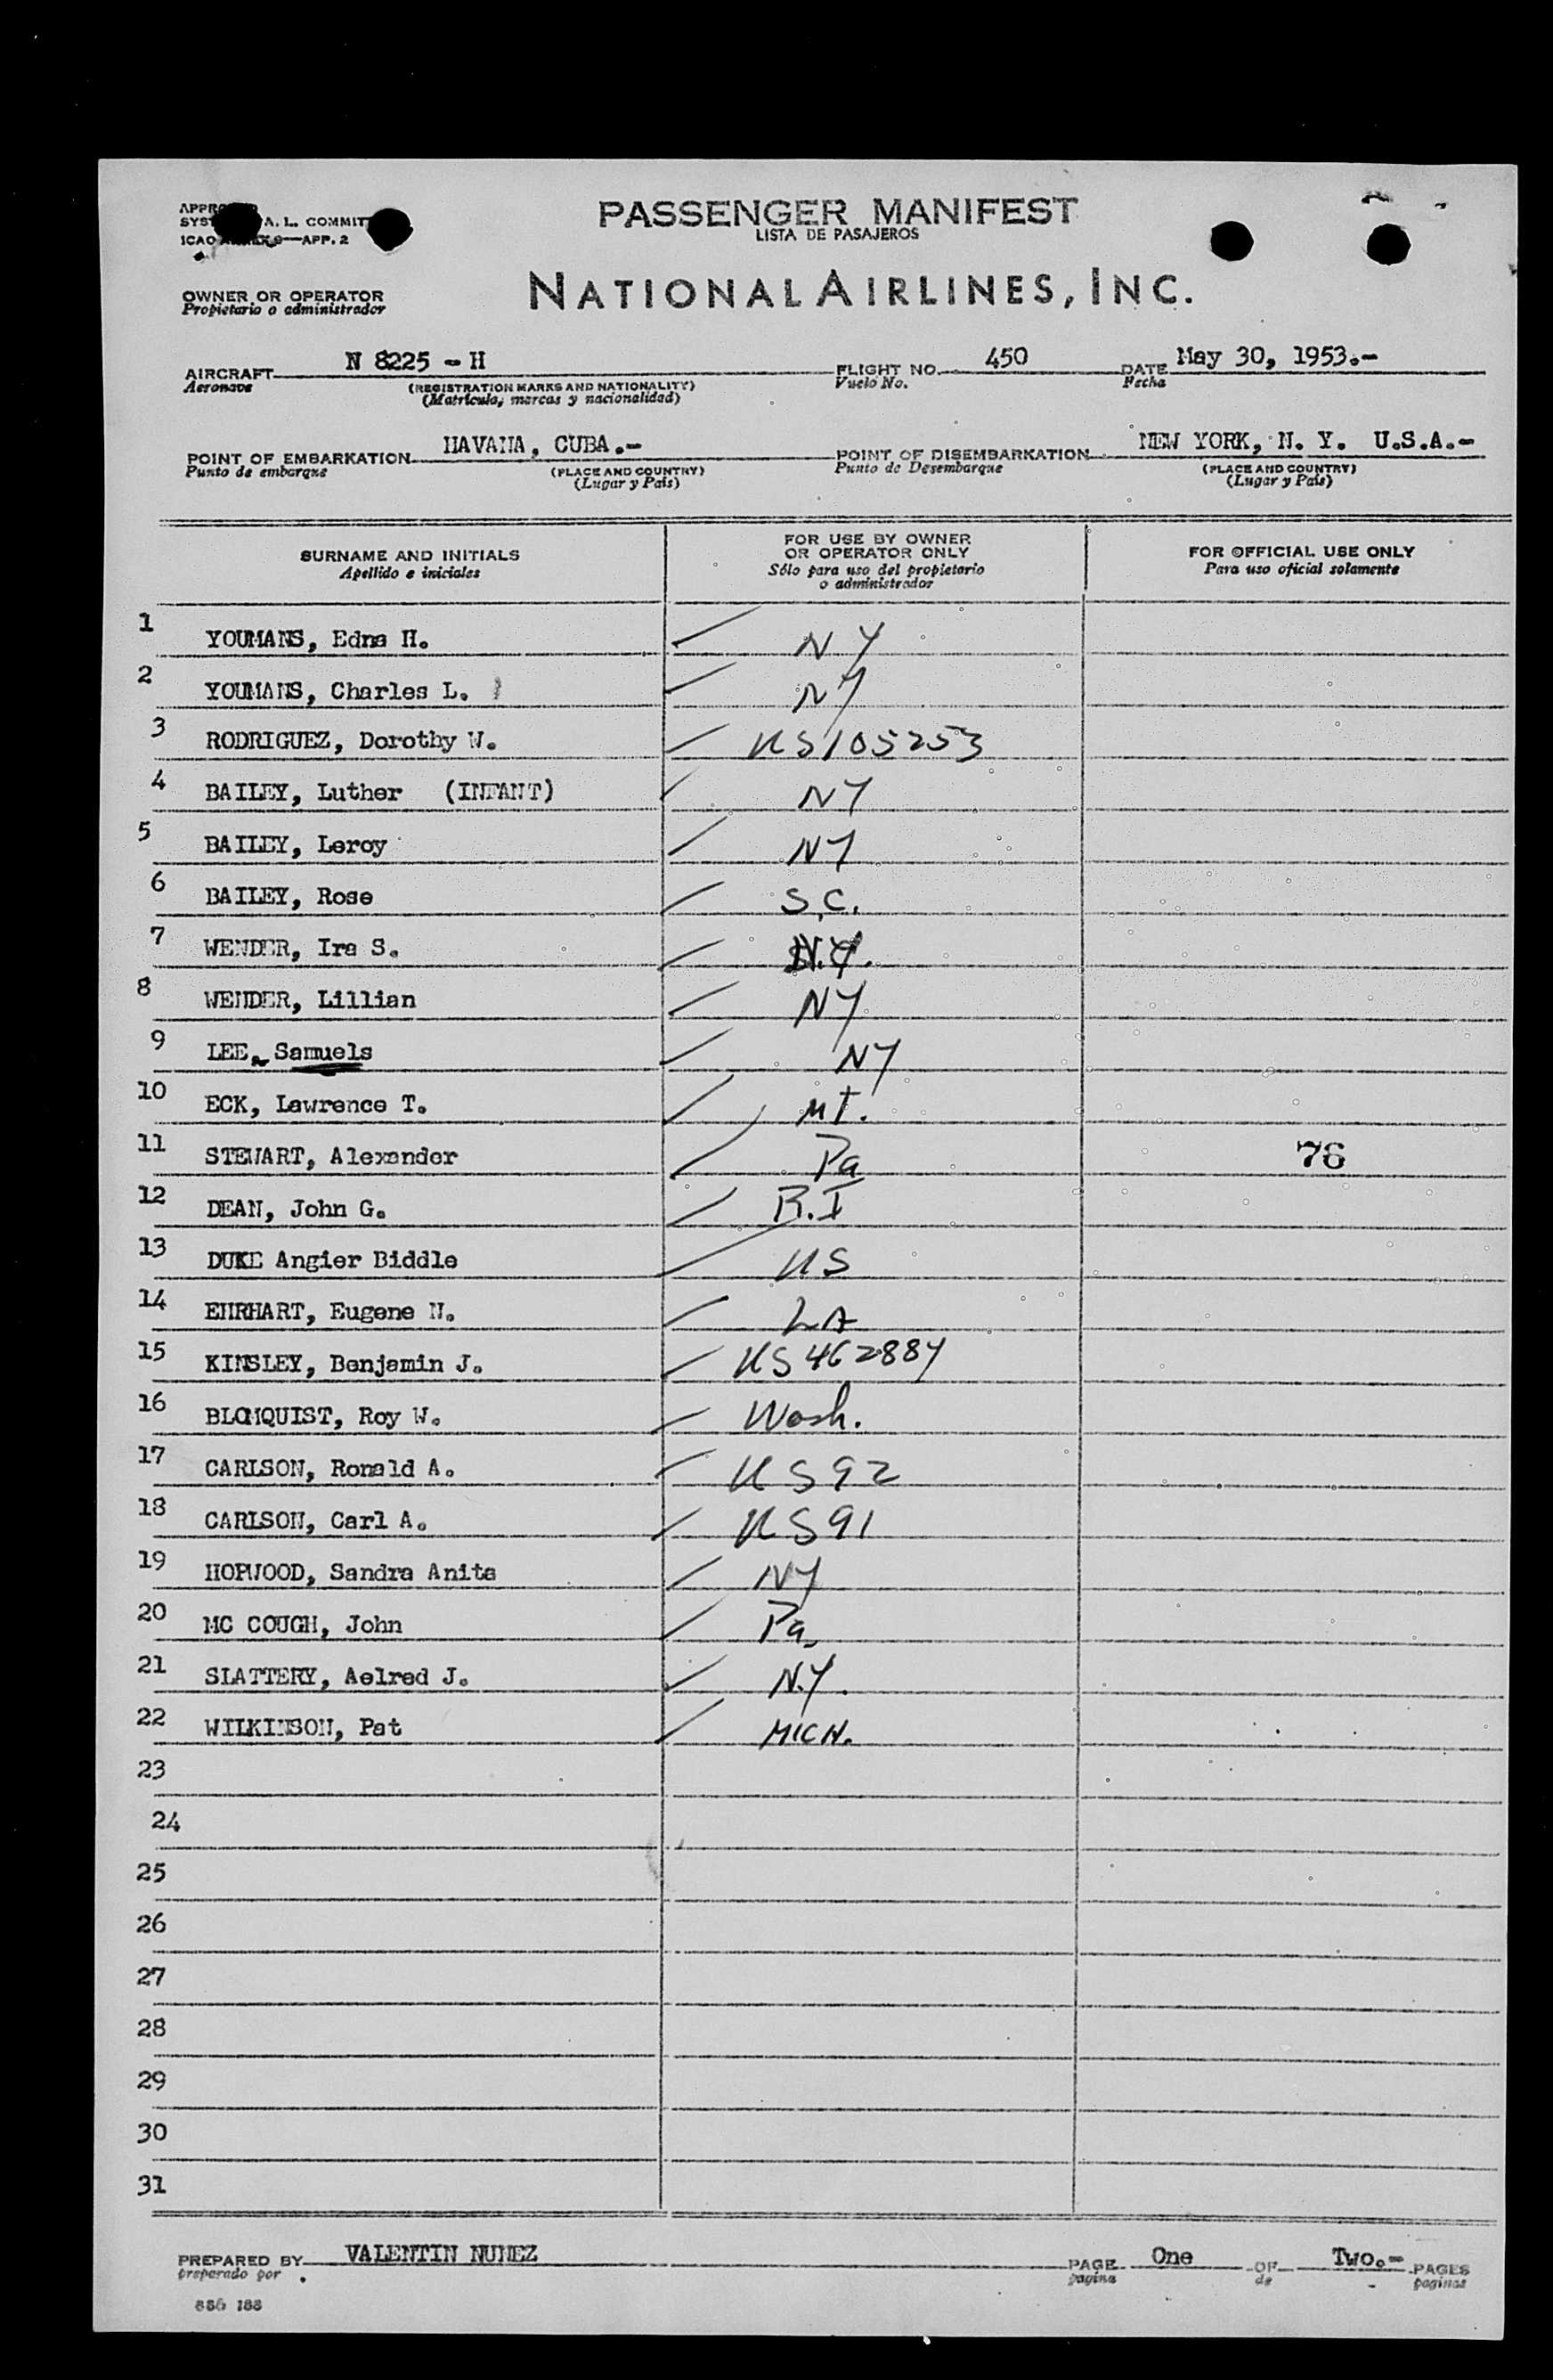 APPROVED
PASSENGER MANIFEST
SYST A. L. COMMIT
LISTA DE PASAJEROS
ICAO ANNEX 9—APP. 2
OWNER OR OPERATOR
Propietario o administrador
NATIONAL AIRLINES, INC.
AIRCRAFT N 8225 - H FLIGHT NO. 450 DATE May 30, 1953.-
Aeronave (REGISTRATION MARKS AND NATIONALITY) Vuelo No. Fecha
(Matricula, marcas y nacionalidad)
POINT OF EMBARKATION HAVANA, CUBA.- POINT OF DISEMBARKATION NEW YORK, N. Y. U.S.A.-
Punto de embarque (PLACE AND COUNTRY) Punto de Desembarque (PLACE AND COUNTRY)
(Lugar y País) (Lugar y País)
SURNAME AND INITIALS FOR USE BY OWNER OR OPERATOR ONLY FOR OFFICIAL USE ONLY
Apellido e iniciales Sólo para uso del propietario o administrador Para uso oficial solamente
1 YOUMANS, Edna H. NY
2 YOUMANS, Charles L. NY
3 RODRIGUEZ, Dorothy W. US105253
4 BAILEY, Luther (INFANT) NY
5 BAILEY, Leroy NY
6 BAILEY, Rose S.C.
7 WENDER, Ira S. N.Y.
8 WENDER, Lillian NY
9 LEE, Samuels NY
10 ECK, Lawrence T. MT.
11 STEWART, Alexander Pa 76
12 DEAN, John G. R.I
13 DUKE Angier Biddle US
14 EHRHART, Eugene N. LA
15 KINSLEY, Benjamin J. US 462884
16 BLOMQUIST, Roy W. Wash.
17 CARLSON, Ronald A. US 92
18 CARLSON, Carl A. US 91
19 HOPWOOD, Sandra Anita NY
20 MC COUGH, John Pa.
21 SLATTERY, Aelred J. N.Y.
22 WILKINSON, Pat MICH.
23
24
25
26
27
28
29
30
31
PREPARED BY VALENTIN NUNEZ PAGE One OF Two.- PAGES
preparado por pagina de paginas